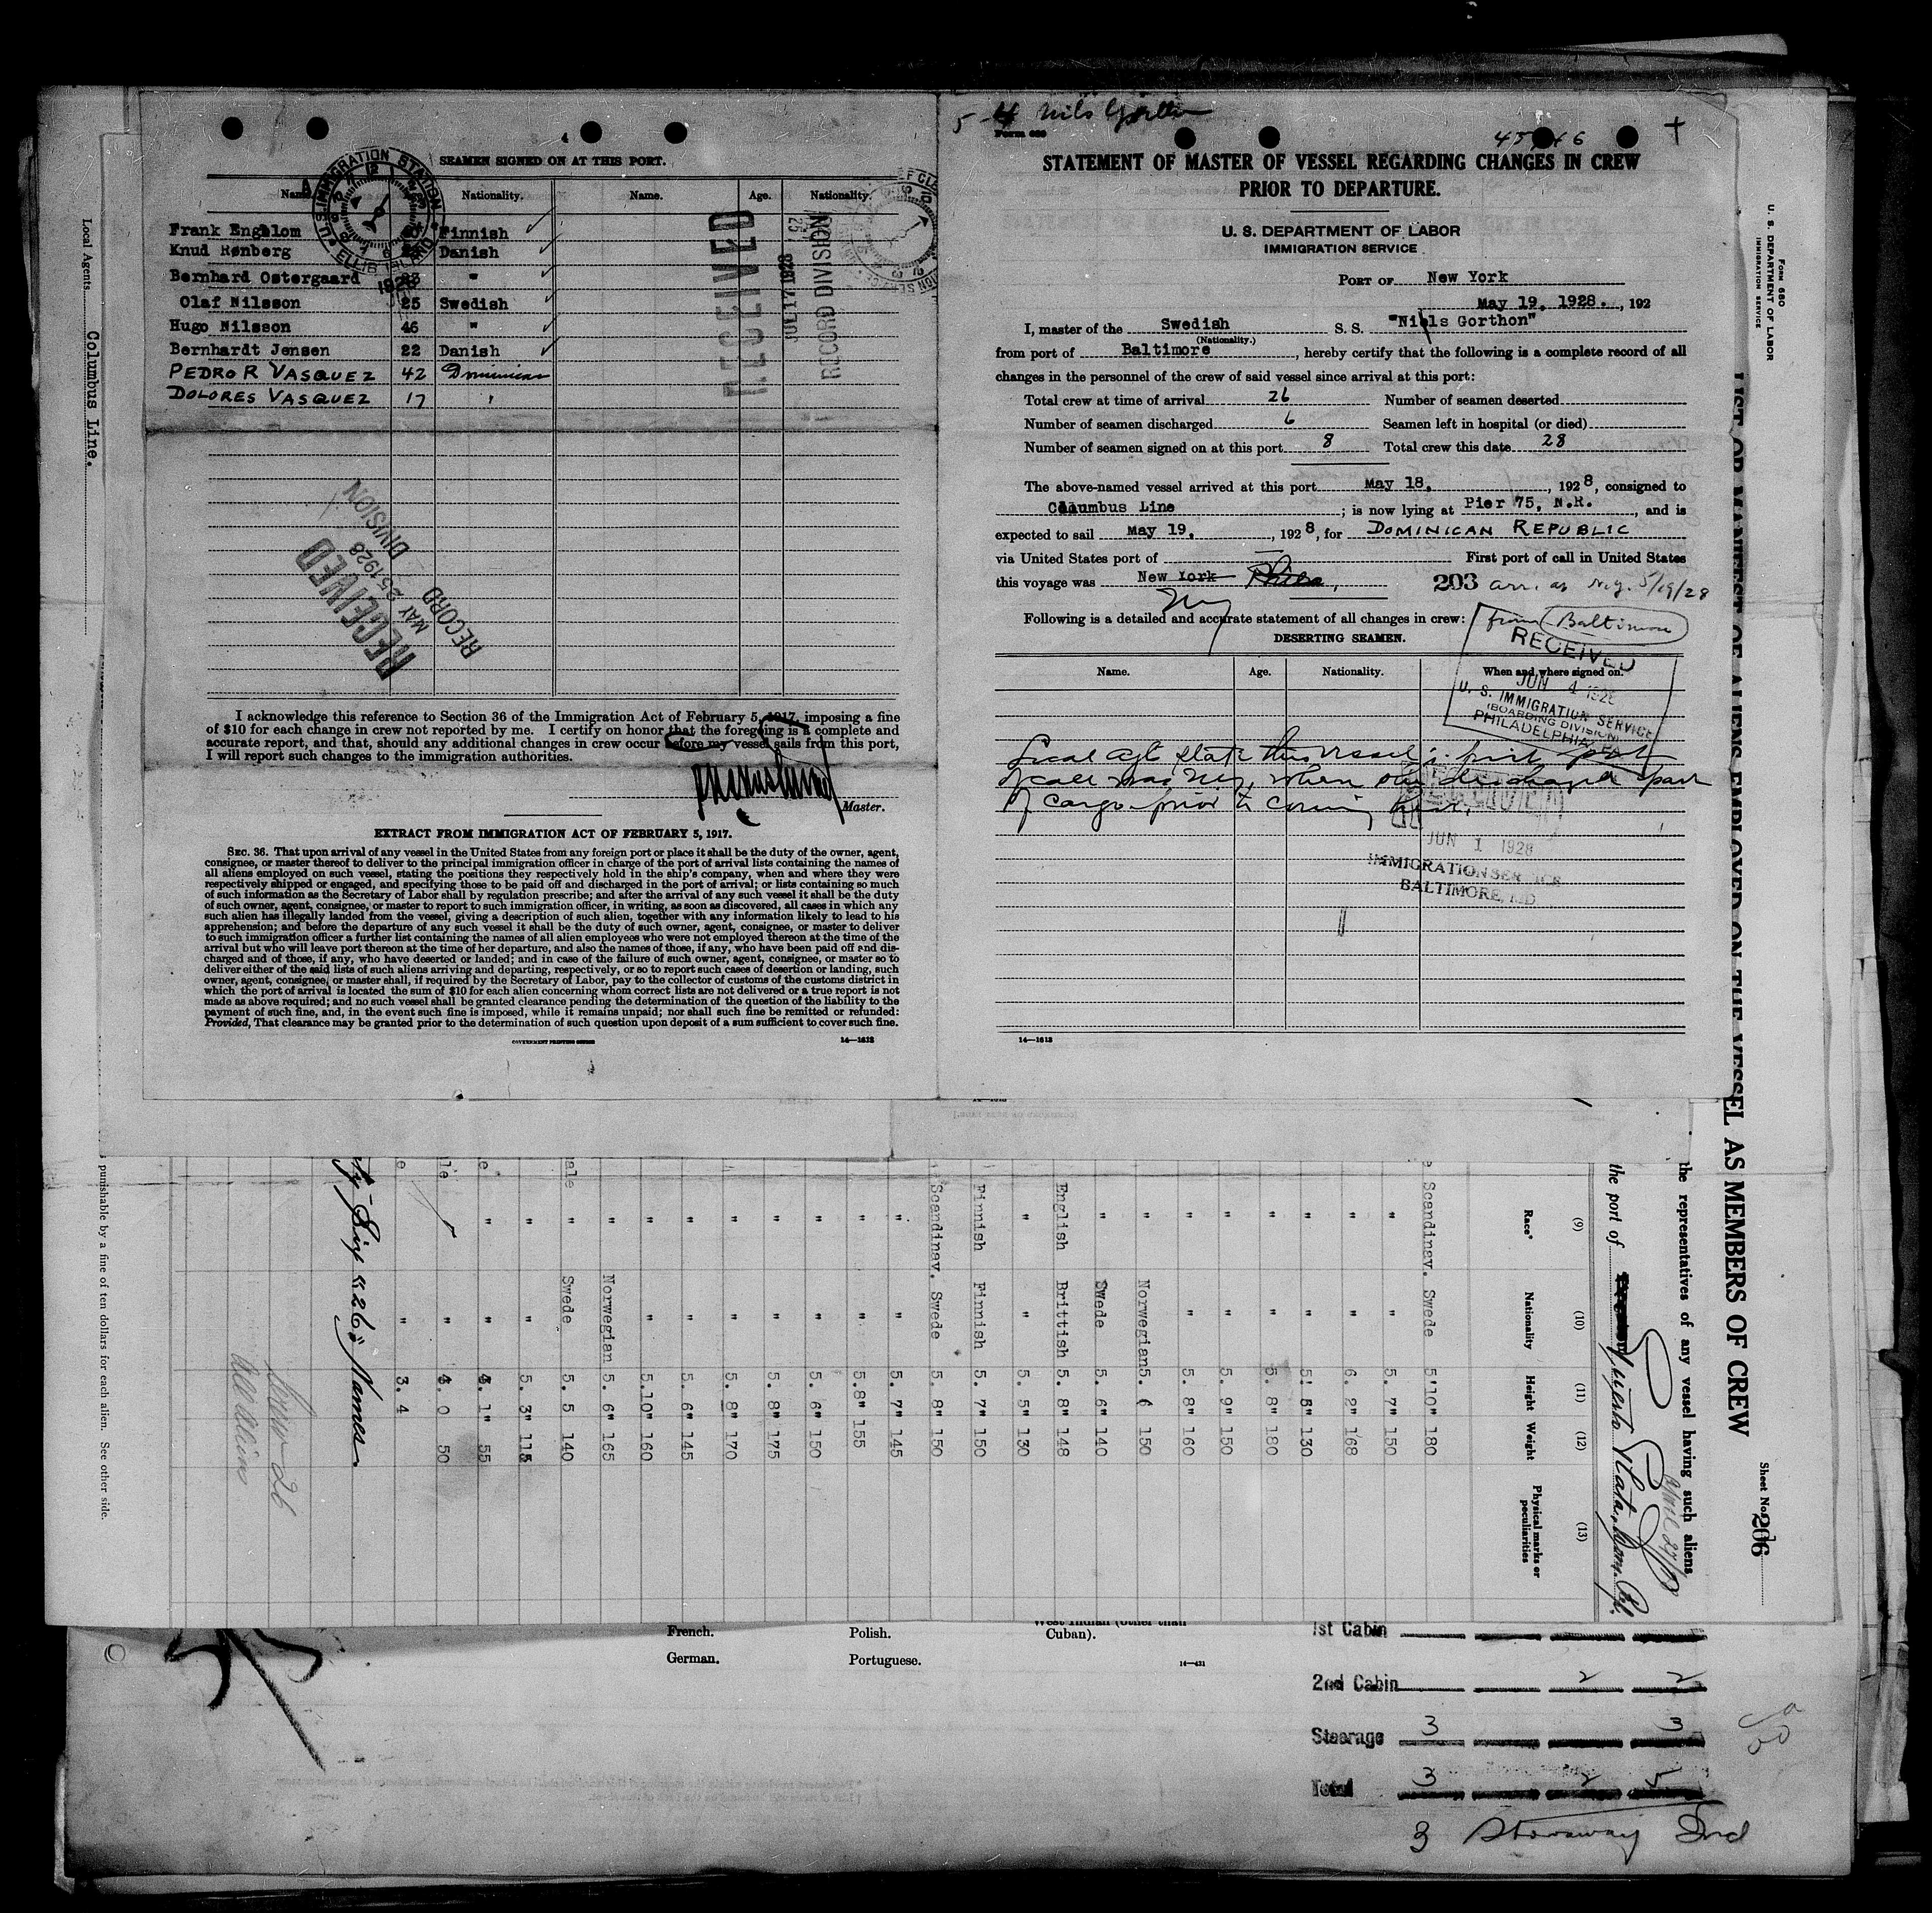 SEAMEN SIGNED ON AT THIS PORT.
Name. Nationality. Name. Age. Nationality.
Frank Engblom Finnish
Knud Rønberg Danish
Bernhard Ostergaard "
Olaf Nilsson 25 Swedish
Hugo Nilsson 46 "
Bernhardt Jensen 22 Danish
PEDRO R VASQUEZ 42 Dominican
DOLORES VASQUEZ 17 "
U.S. IMMIGRATION STATION
ELLIS ISLAND
1928
RECEIVED
JUL 17 1928
RECORD DIVISION
RECEIVED
MAY 25 1928
RECORD
DIVISION
I acknowledge this reference to Section 36 of the Immigration Act of February 5, 1917, imposing a fine
of $10 for each change in crew not reported by me. I certify on honor that the foregoing is a complete and
accurate report, and that, should any additional changes in crew occur before my vessel sails from this port,
I will report such changes to the immigration authorities.
Master.
EXTRACT FROM IMMIGRATION ACT OF FEBRUARY 5, 1917.
SEC. 36. That upon arrival of any vessel in the United States from any foreign port or place it shall be the duty of the owner, agent,
consignee, or master thereof to deliver to the principal immigration officer in charge of the port of arrival lists containing the names of
all aliens employed on such vessel, stating the positions they respectively hold in the ship's company, when and where they were
respectively shipped or engaged, and specifying those to be paid off and discharged in the port of arrival; or lists containing so much
of such information as the Secretary of Labor shall by regulation prescribe; and after the arrival of any such vessel it shall be the duty
of such owner, agent, consignee, or master to report to such immigration officer, in writing, as soon as discovered, all cases in which any
such alien has illegally landed from the vessel, giving a description of such alien, together with any information likely to lead to his
apprehension; and before the departure of any such vessel it shall be the duty of such owner, agent, consignee, or master to deliver
to such immigration officer a further list containing the names of all alien employees who were not employed thereon at the time of the
arrival but who will leave port thereon at the time of her departure, and also the names of those, if any, who have been paid off and dis-
charged and of those, if any, who have deserted or landed; and in case of the failure of such owner, agent, consignee, or master so to
deliver either of the said lists of such aliens arriving and departing, respectively, or so to report such cases of desertion or landing, such
owner, agent, consignee, or master shall, if required by the Secretary of Labor, pay to the collector of customs of the customs district in
which the port of arrival is located the sum of $10 for each alien concerning whom correct lists are not delivered or a true report is not
made as above required; and no such vessel shall be granted clearance pending the determination of the question of the liability to the
payment of such fine, and, in the event such fine is imposed, while it remains unpaid; nor shall such fine be remitted or refunded:
Provided, That clearance may be granted prior to the determination of such question upon deposit of a sum sufficient to cover such fine.
GOVERNMENT PRINTING OFFICE 14—1613
5-4 Nils Gorthon
Form 689
STATEMENT OF MASTER OF VESSEL REGARDING CHANGES IN CREW
PRIOR TO DEPARTURE.
U. S. DEPARTMENT OF LABOR
IMMIGRATION SERVICE
PORT OF New York
May 19, 1928. , 192
I, master of the Swedish S. S. "Niels Gorthon"
(Nationality.)
from port of Baltimore, hereby certify that the following is a complete record of all
changes in the personnel of the crew of said vessel since arrival at this port:
Total crew at time of arrival 26 Number of seamen deserted
Number of seamen discharged 6 Seamen left in hospital (or died)
Number of seamen signed on at this port 8 Total crew this date 28
The above-named vessel arrived at this port May 18, , 1928, consigned to
Columbus Line ; is now lying at Pier 75, N.R. , and is
expected to sail May 19, , 1928, for DOMINICAN REPUBLIC
via United States port of First port of call in United States
this voyage was New York Phila, 203 arr. at N.Y. 5/19/28
Ny
from Baltimore
Following is a detailed and accurate statement of all changes in crew:
DESERTING SEAMEN.
Name. Age. Nationality. When and where signed on.
RECEIVED
JUN 4 1928
U. S. IMMIGRATION SERVICE
(BOARDING DIVISION)
PHILADELPHIA, PA
Local agt state this vessel's first port
of call was N.Y. when she discharged part
of cargo prior to coming here.
RECEIVED
JUN 1 1928
IMMIGRATION SERVICE
BALTIMORE, MD
14—1613
Local Agents Columbus Line.
punishable by a fine of ten dollars for each alien. See other side.
Form 680
U. S. DEPARTMENT OF LABOR
IMMIGRATION SERVICE
LIST OR MANIFEST OF ALIENS EMPLOYED ON THE VESSEL AS MEMBERS OF CREW
Sheet No. 206
the representatives of any vessel having such aliens
the port of Puerto Plata, Dom. Rep.
(9) (10) (11) (12) (13)
Race* Nationality Height Weight Physical marks or peculiarities
Scandinav. Swede 5'10" 180
" " 5. 7" 150
" " 6. 2" 168
" " 5' 5" 130
" " 5. 8" 180
" " 5. 9" 150
" " 5. 8" 160
" Norwegian 5. 6 150
" Swede 5. 6" 140
English Brittish 5. 8" 148
" " 5. 5" 130
Finnish Finnish 5. 7" 150
Scandinav. Swede 5. 8" 150
" " 5. 7" 145
" " 5.8" 155
" " 5. 6" 150
" " 5. 8" 175
" " 5. 8" 170
" " 5. 6" 145
" " 5.10" 160
" Norwegian 5. 6" 165
" Swede 5. 5 140
" " 5. 3" 115
" " 4. 1" 55
" 4. 0 50
" 3. 4
Six "26" Names
Crew 26
French. Polish. Cuban).
German. Portuguese.
14—431
1st Cabin
2nd Cabin 2 2
Steerage 3 3
Total 3 2 5
3 Stowaway Ind